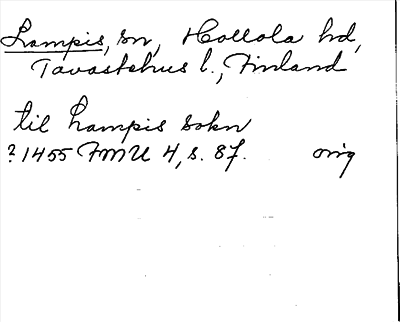 Lampis, sn, Hollola hd,
Tavastehus l., Finland
til Lampis sokn
? 1455 FMU 4, s. 87. orig